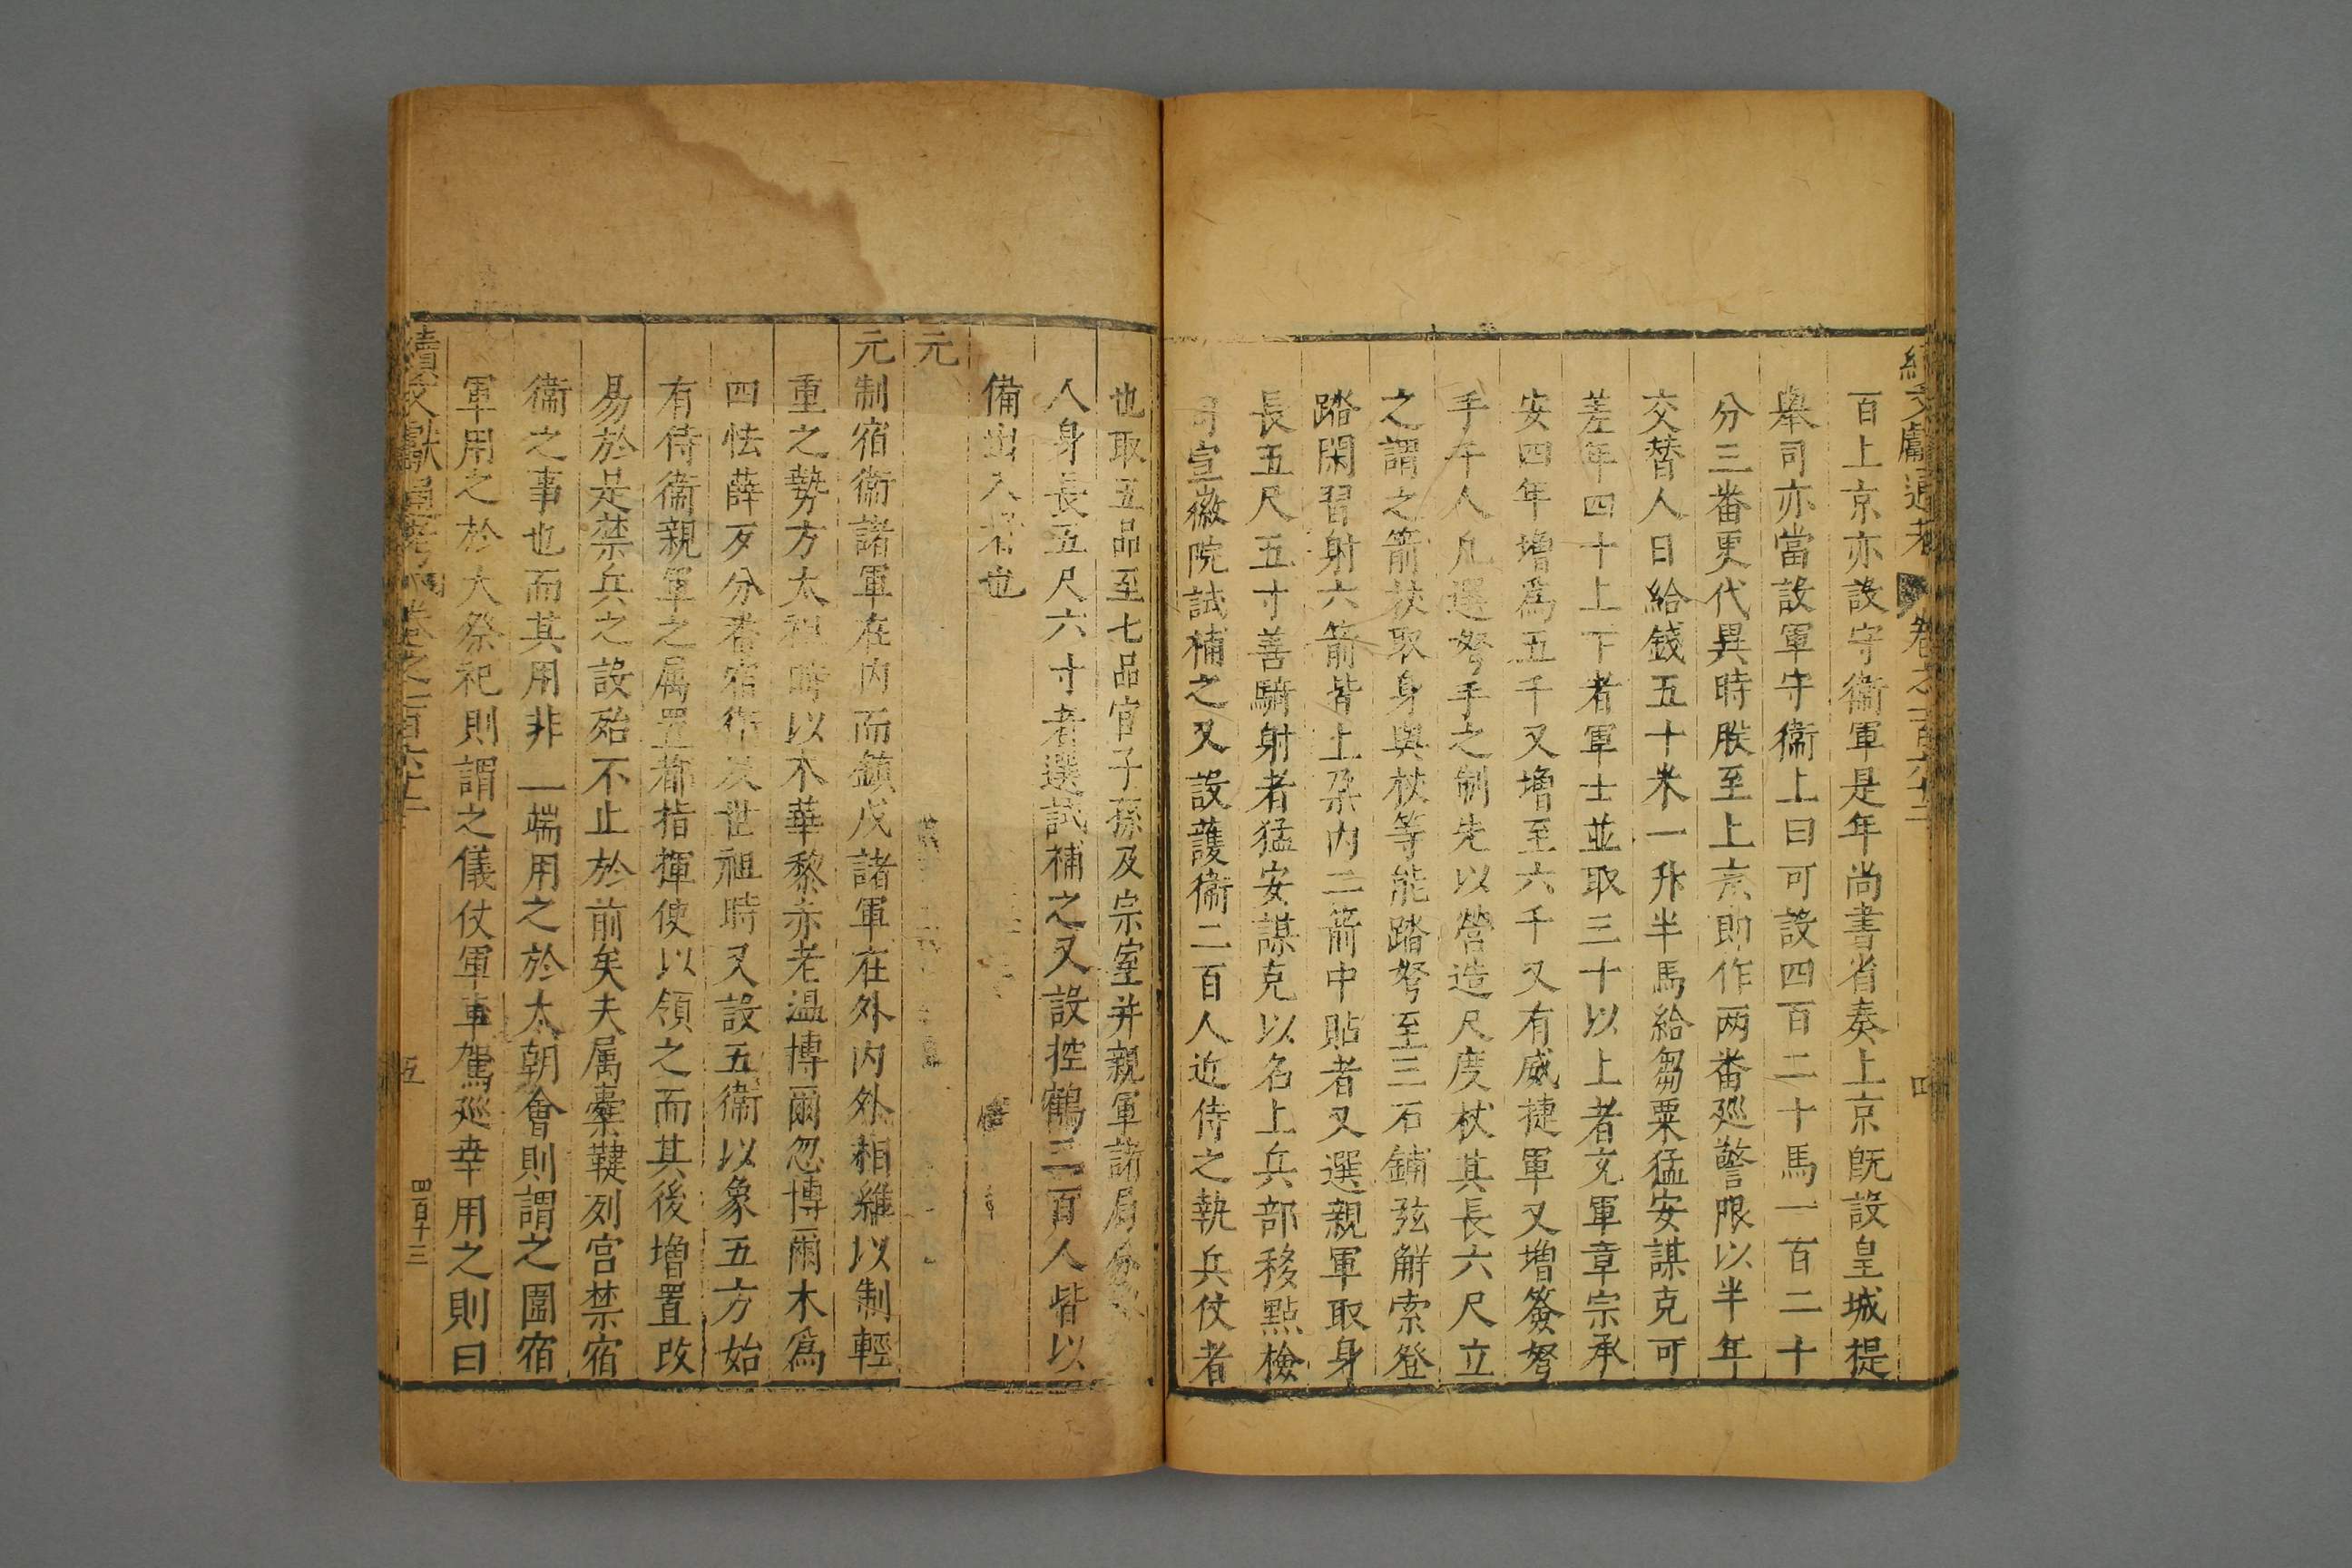 文獻通考 卷之一百六十二 四
百上京亦設守衞軍是年尚書省奏上京旣設皇城提
舉司亦當設軍守衞上曰可設四百二十馬一百二十
分三番更代異時朕至上京即作两番廵警限以半年
交替人日給錢五十米一升半馬給芻粟猛安謀克可
差年四十上下者軍士並取三十以上者充軍章宗承
安四年增爲五千又增至六千又有威捷軍又增簽弩
手千人凡選弩手之制先以營造尺度杖其長六尺立
之謂之箭杖取身與杖等能踏弩至三石鋪弦解索登
踏閑習射六箭皆上垜内二箭中貼者又選親軍取身
長五尺五寸善騎射者猛安謀克以名上兵部移點檢
司宣徽院試補之又設護衞二百人近侍之執兵仗者
也取五品至七品官子孫及宗室并親軍諸局分
人身長五尺六寸者選試補之又設控鶴二百人皆以
備出入者也
元
元制宿衞諸軍在内而鎮戍諸軍在外内外相維以制輕
重之勢方太祖時以木華黎赤老温博爾忽博爾木爲
四怯薛歹分番宿衞及世祖時又設五衞以象五方始
有侍衞親軍之属置都指揮使以領之而其後增置改
易於是禁兵之設殆不止於前矣夫属櫜鞬列宮禁宿
衞之事也而其用非一端用之於太朝會則謂之圍宿
軍用之於大祭祀則謂之儀仗軍車駕廵幸用之則曰
續文獻通考 卷之一百六十二 五 四百十三